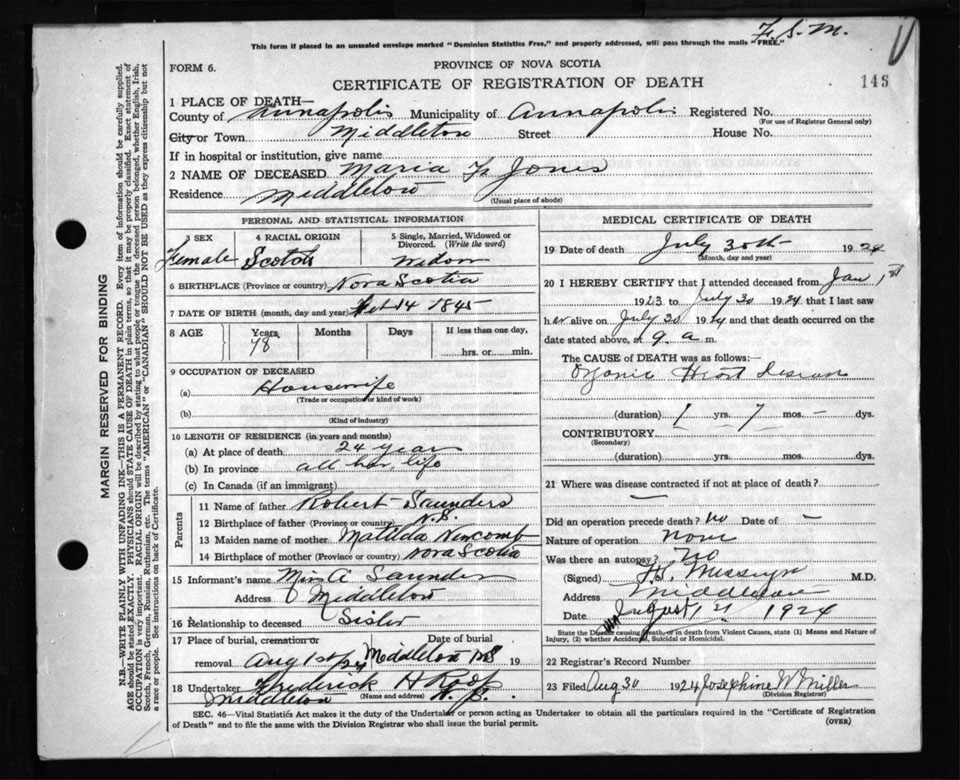 F. S. M.
This form if placed in an unsealed envelope marked "Dominion Statistics Free," and properly addressed, will pass through the mails "FREE."
FORM 6.
PROVINCE OF NOVA SCOTIA
CERTIFICATE OF REGISTRATION OF DEATH
146
1 PLACE OF DEATH—
County of Annapolis Municipality of Annapolis Registered No.
(For use of Registrar General only)
City or Town Middleton Street House No.
If in hospital or institution, give name
2 NAME OF DECEASED Maria Jones
Residence Middleton
(Usual place of abode)
PERSONAL AND STATISTICAL INFORMATION
3 SEX
Female
4 RACIAL ORIGIN
Scotch
5 Single, Married, Widowed or Divorced. (Write the word)
Widow
6 BIRTHPLACE (Province or country) Nova Scotia
7 DATE OF BIRTH (month, day and year) 14 1845
8 AGE Years Months Days If less than one day,
78 hrs. or min.
9 OCCUPATION OF DECEASED
(a) Housewife
(Trade or occupation or kind of work)
(b)
(Kind of industry)
10 LENGTH OF RESIDENCE (in years and months)
(a) At place of death 24 years
(b) In province all her life
(c) In Canada (if an immigrant)
Parents
11 Name of father Robert Saunders
12 Birthplace of father (Province or country) N.S.
13 Maiden name of mother Matilda Newcomb
14 Birthplace of mother (Province or country) Nova Scotia
15 Informant's name Miss A Saunders
Address Middleton
16 Relationship to deceased Sister
17 Place of burial, cremation or Date of burial
removal Aug 1st/24 Middleton NS 19
18 Undertaker Frederick H Roop
Middleton (Name and address) N. S.
MEDICAL CERTIFICATE OF DEATH
19 Date of death July 30th 1924
(Month, day and year)
20 I HEREBY CERTIFY that I attended deceased from Jan 1st
1923 to July 30 1924 that I last saw
her alive on July 30 1924 and that death occurred on the
date stated above, at 9 a m.
The CAUSE of DEATH was as follows:
Organic Heart Disease
(duration) 1 yrs. 7 mos. — dys.
CONTRIBUTORY
(Secondary)
(duration) yrs. mos. dys.
21 Where was disease contracted if not at place of death?
—
Did an operation precede death? No Date of —
Nature of operation None
Was there an autopsy? No
(Signed) M.D.
Address Middleton
Date August 1924
State the Disease causing death, or in death from Violent Causes, state (1) Means and Nature of Injury, (2) whether Accidental, Suicidal or Homicidal.
22 Registrar's Record Number
23 Filed Aug 30 1924 Josephine W Miller
(Division Registrar)
SEC. 46—Vital Statistics Act makes it the duty of the Undertaker or person acting as Undertaker to obtain all the particulars required in the "Certificate of Registration
of Death" and to file the same with the Division Registrar who shall issue the burial permit.
(OVER)
MARGIN RESERVED FOR BINDING
N.B.—WRITE PLAINLY WITH UNFADING INK—THIS IS A PERMANENT RECORD. Every item of information should be carefully supplied.
AGE should be stated EXACTLY. PHYSICIANS should STATE CAUSE OF DEATH in plain terms, so that it may be properly classified. Exact statement of
OCCUPATION is very important. RACIAL ORIGIN will be described by stating to what people or tongue the deceased person belonged, whether English, Irish,
Scotch, French, German, Russian, Ruthenian, etc. The terms "AMERICAN" or "CANADIAN" SHOULD NOT BE USED as they express citizenship but not
a race or people. See instructions on back of Certificate.